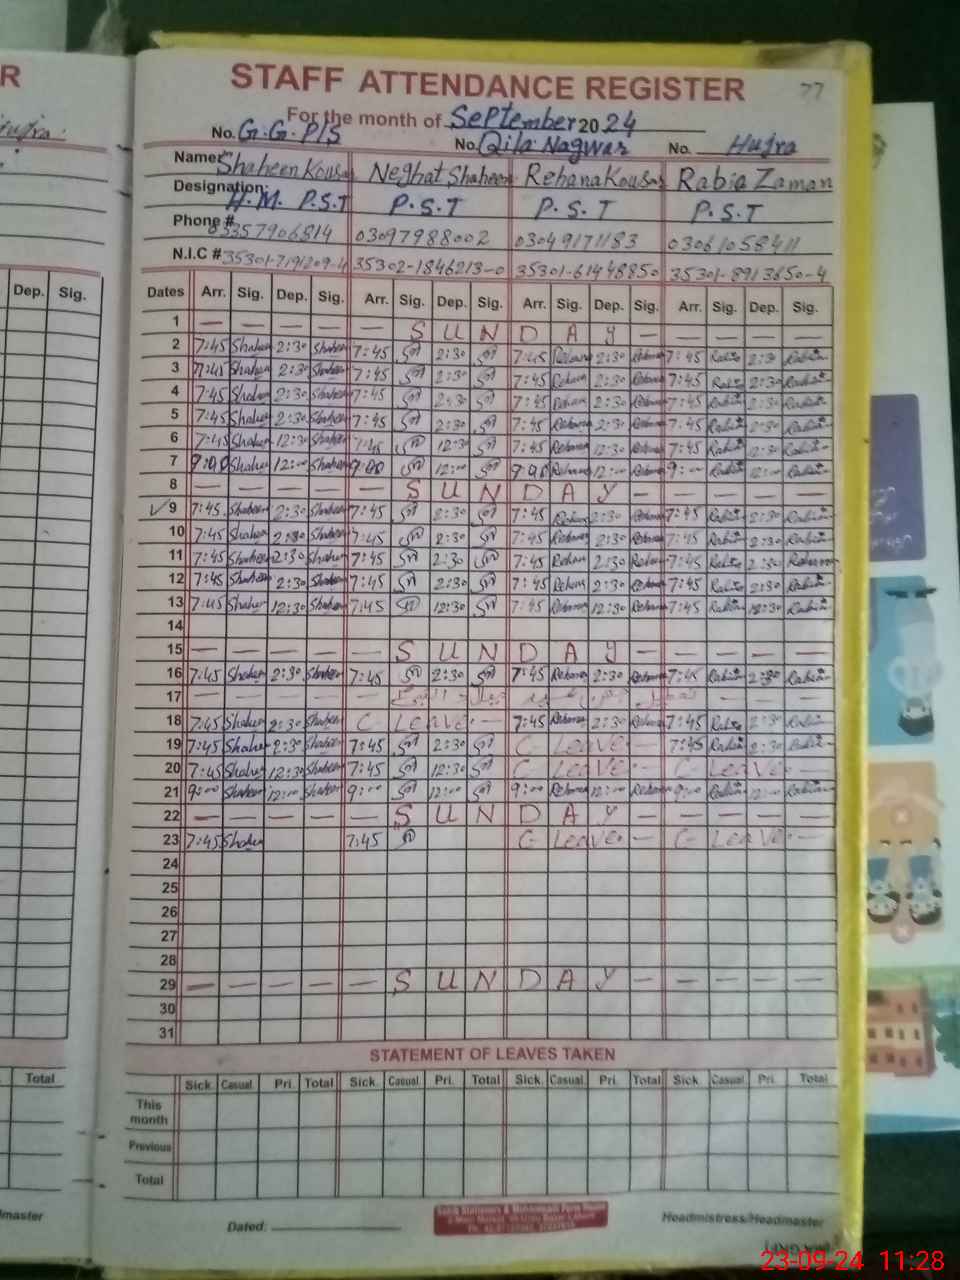 R
STAFF ATTENDANCE REGISTER
77
For the month of September 2024
No. G.G.P/S No. Qila Nagwar No. Hujra
Name: Shaheen Kousar Neghat Shaheen Rehana Kousar Rabia Zaman
Designation: H.M. P.S.T P.S.T P.S.T P.S.T
Phone # 03357906814 03097988002 03049171183 03061058411
N.I.C # 35301-7191209-4 35302-1846213-0 35301-61448850 35301-8913650-4
Dep. Sig.
Dates Arr. Sig. Dep. Sig. Arr. Sig. Dep. Sig. Arr. Sig. Dep. Sig. Arr. Sig. Dep. Sig.
1 — — — — — S U N D A Y — — — — —
2 7:45 Shaheen 2:30 Shaheen 7:45 2:30 7:45 Rehana 2:30 Rehana 7:45 Rabia 2:30 Rabia
3 7:45 Shaheen 2:30 Shaheen 7:45 2:30 7:45 Rehana 2:30 Rehana 7:45 Rabia 2:30 Rabia
4 7:45 Shaheen 2:30 Shaheen 7:45 2:30 7:45 Rehana 2:30 Rehana 7:45 Rabia 2:30 Rabia
5 7:45 Shaheen 2:30 Shaheen 7:45 2:30 7:45 Rehana 2:30 Rehana 7:45 Rabia 2:30 Rabia
6 7:45 Shaheen 12:30 Shaheen 7:45 12:30 7:45 Rehana 12:30 Rehana 7:45 Rabia 12:30 Rabia
7 9:00 Shaheen 12:00 Shaheen 9:00 12:00 9:00 Rehana 12:00 Rehana 9:00 Rabia 12:00 Rabia
8 — — — — — S U N D A Y — — — — —
9 7:45 Shaheen 2:30 Shaheen 7:45 2:30 7:45 Rehana 2:30 Rehana 7:45 Rabia 2:30 Rabia
10 7:45 Shaheen 2:30 Shaheen 7:45 2:30 7:45 Rehana 2:30 Rehana 7:45 Rabia 2:30 Rabia
11 7:45 Shaheen 2:30 Shaheen 7:45 2:30 7:45 Rehana 2:30 Rehana 7:45 Rabia 2:30
12 7:45 Shaheen 2:30 Shaheen 7:45 2:30 7:45 Rehana 2:30 Rehana 7:45 Rabia 2:30 Rabia
13 7:45 Shaheen 12:30 Shaheen 7:45 12:30 7:45 Rehana 12:30 Rehana 7:45 Rabia 12:30 Rabia
14
15 — — — — — S U N D A Y — — — — —
16 7:45 Shaheen 2:30 Shaheen 7:45 2:30 7:45 Rehana 2:30 Rehana 7:45 Rabia 2:30 Rabia
17 —
18 7:45 Shaheen 2:30 Shaheen C- Leave — 7:45 Rehana 2:30 Rehana 7:45 Rabia 2:30 Rabia
19 7:45 Shaheen 2:30 Shaheen 7:45 2:30 C- Leave — 7:45 Rabia 2:30 Rabia
20 7:45 Shaheen 12:30 Shaheen 7:45 12:30 C- Leave — C- Leave —
21 9:00 Shaheen 12:00 Shaheen 9:00 12:00 9:00 Rehana 12:00 Rehana 9:00 Rabia 12:00 Rabia
22 — — — — — S U N D A Y — — — — —
23 7:45 Shaheen 7:45 C- Leave — C- Leave —
24
25
26
27
28
29 — — — — — S U N D A Y — — — — —
30
31
STATEMENT OF LEAVES TAKEN
Total
Sick. Casual. Pri. Total Sick. Casual. Pri. Total Sick. Casual. Pri. Total Sick. Casual. Pri. Total
This month
Previous
Total
Dated:
Headmistress/Headmaster
23-09-24 11:28